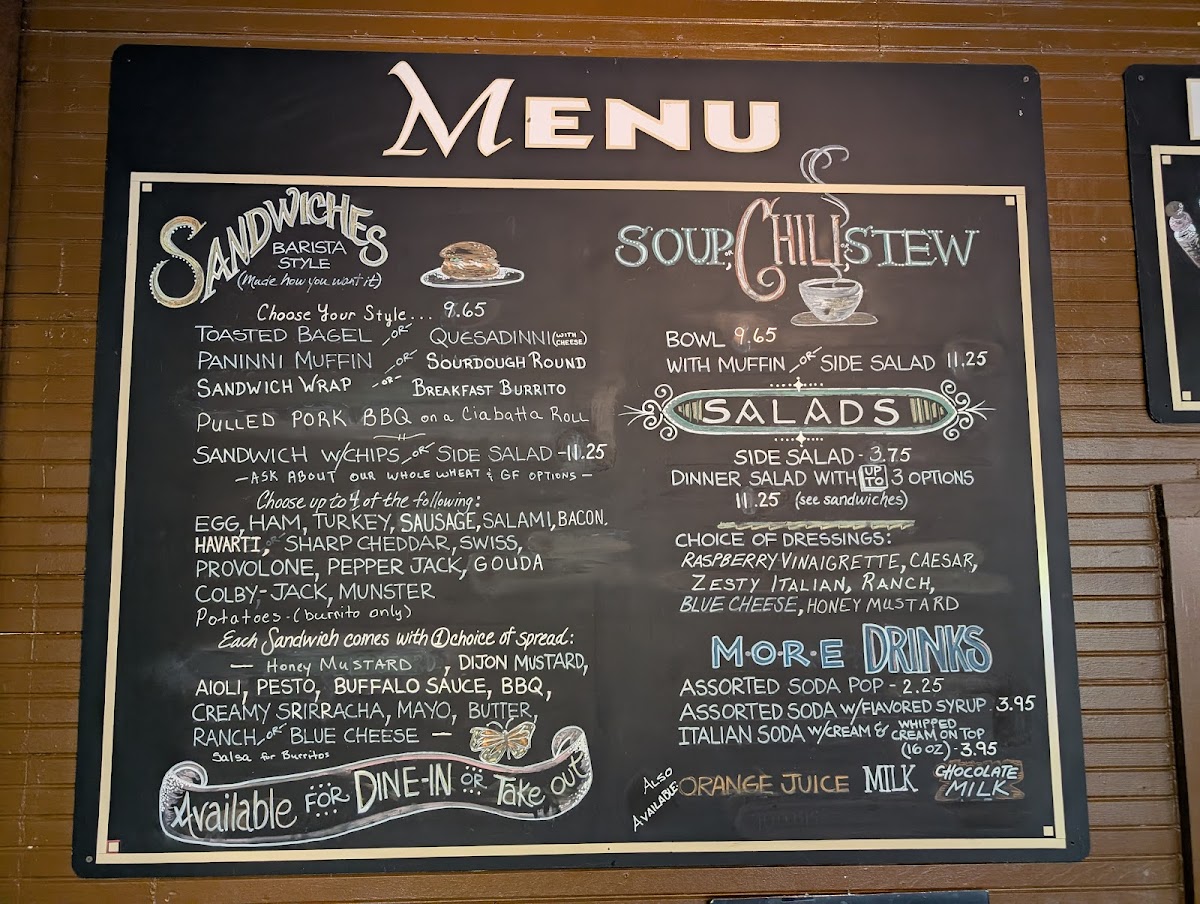 MENU
SANDWICHES
BARISTA
STYLE
(Made how you want it)
Choose Your Style... 9.65
TOASTED BAGEL -OR- QUESADINNI (WITH CHEESE)
PANINNI MUFFIN -OR- SOURDOUGH ROUND
SANDWICH WRAP -OR- BREAKFAST BURRITO
PULLED PORK BBQ on a Ciabatta Roll
SANDWICH W/CHIPS -OR- SIDE SALAD - 11.25
- ASK ABOUT OUR WHOLE WHEAT & GF OPTIONS -
Choose up to 4 of the following:
EGG, HAM, TURKEY, SAUSAGE, SALAMI, BACON.
HAVARTI, OR SHARP CHEDDAR, SWISS,
PROVOLONE, PEPPER JACK, GOUDA
COLBY-JACK, MUNSTER
Potatoes - (burrito only)
Each Sandwich comes with 1 choice of spread:
— Honey MUSTARD , DIJON MUSTARD,
AIOLI, PESTO, BUFFALO SAUCE, BBQ,
CREAMY SRIRRACHA, MAYO, BUTTER,
RANCH -OR- BLUE CHEESE —
Salsa for Burritos
Available FOR DINE-IN OR Take out
SOUP, CHILI, STEW
BOWL 9.65
WITH MUFFIN -OR- SIDE SALAD 11.25
SALADS
SIDE SALAD - 3.75
DINNER SALAD WITH UP TO 3 OPTIONS
11.25 (see sandwiches)
CHOICE OF DRESSINGS:
RASPBERRY VINAIGRETTE, CAESAR,
ZESTY ITALIAN, RANCH,
BLUE CHEESE, HONEY MUSTARD
M·O·R·E DRINKS
ASSORTED SODA POP - 2.25
ASSORTED SODA W/FLAVORED SYRUP. 3.95
ITALIAN SODA W/CREAM & WHIPPED CREAM ON TOP
(16 OZ) - 3.95
ALSO AVAILABLE ORANGE JUICE MILK CHOCOLATE MILK